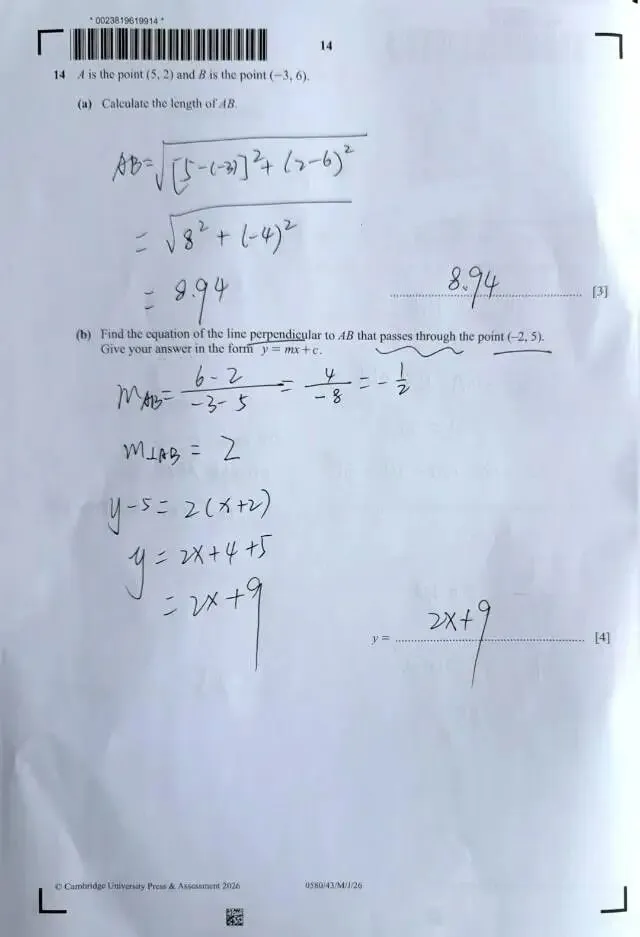 * 0023819619914 *
14
14 A is the point (5, 2) and B is the point (−3, 6).
(a) Calculate the length of AB.
AB = √([5-(-3)]² + (2-6)²)
= √(8² + (-4)²)
= 8.94
8.94 [3]
(b) Find the equation of the line perpendicular to AB that passes through the point (−2, 5).
Give your answer in the form y = mx + c.
m_AB = (6-2)/(-3-5) = 4/(-8) = -1/2
m_⊥AB = 2
y-5 = 2(x+2)
y = 2x+4+5
= 2x+9
y = 2x+9 [4]
© Cambridge University Press & Assessment 2026
0580/43/M/J/26